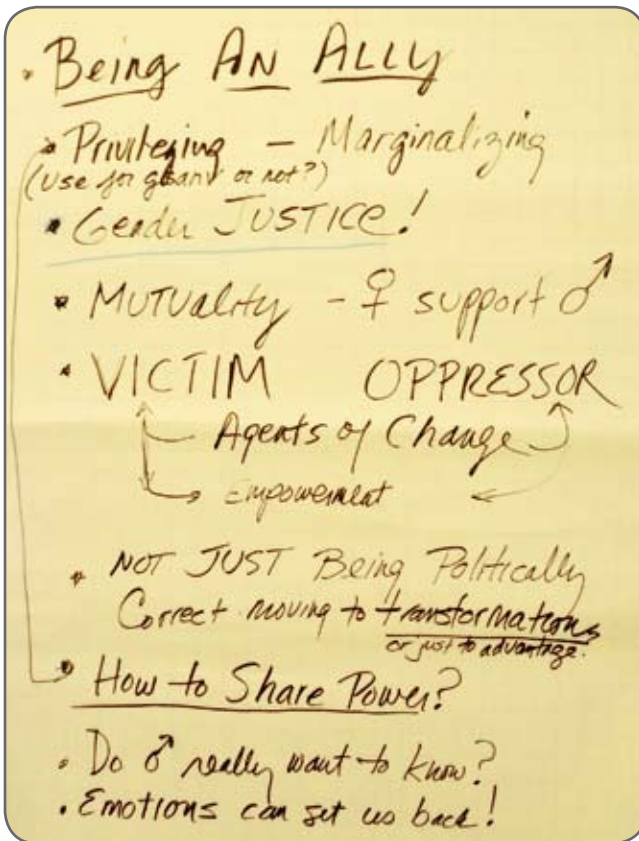 • Being AN ALLY
• Privileging – Marginalizing
(use for or not?)
• Gender JUSTICE!
• MUTUALITY - ♀ support ♂
• VICTIM OPPRESSOR
Agents of Change
Empowerment
• NOT JUST Being Politically
Correct moving to transformations
or just to advantage.
• How to Share Power?
• Do ♂ really want to know?
• Emotions can set us back!